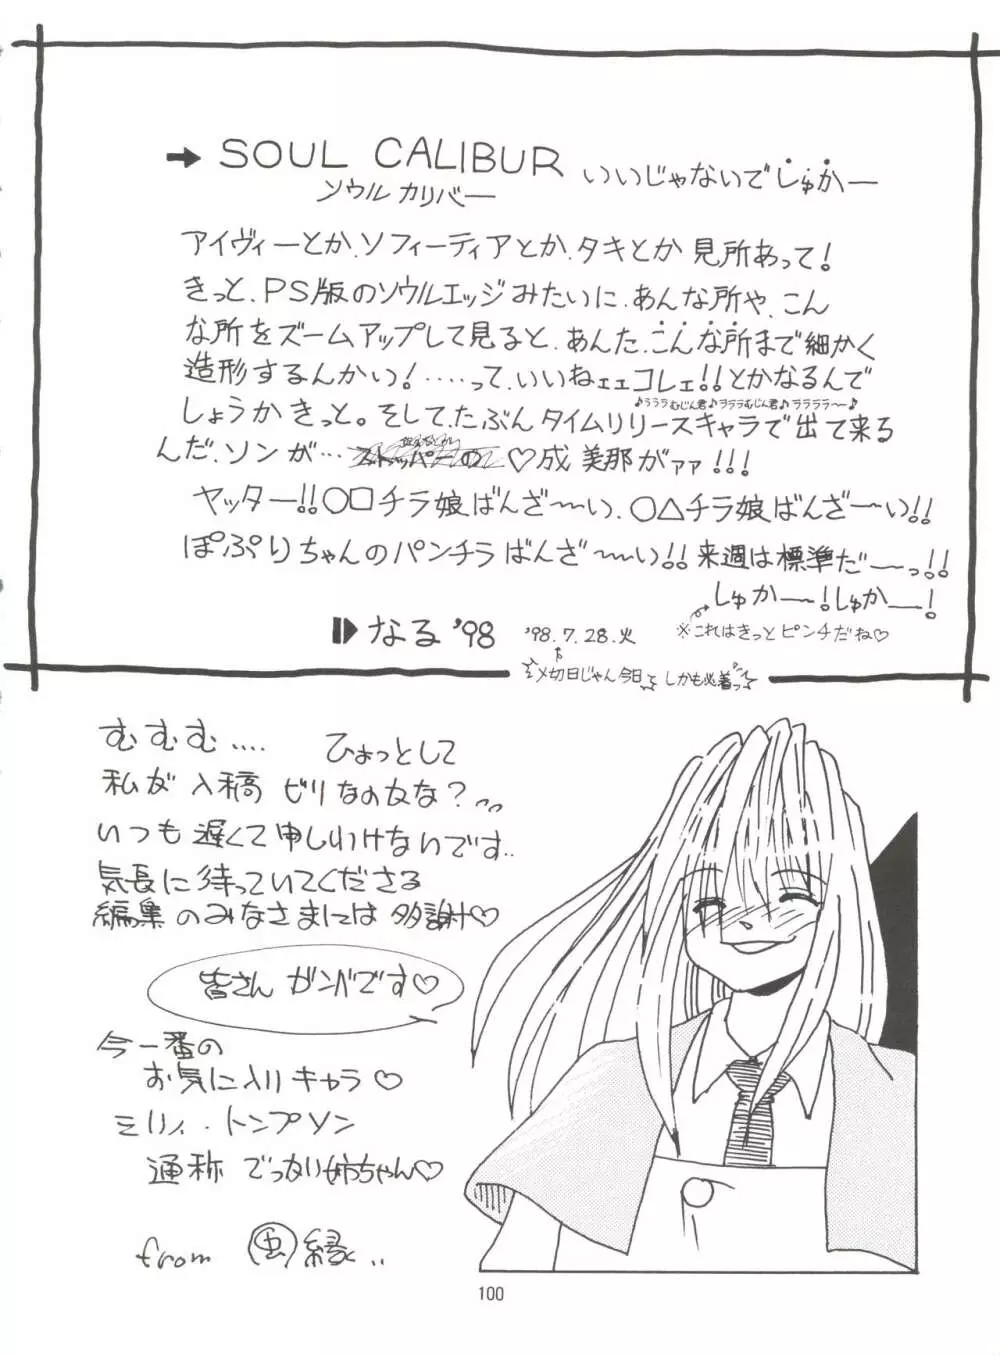 → SOUL CALIBUR いいじゃないでしゅかー
ソウルカリバー
アイヴィーとか、ソフィーティアとか、タキとか見所あって!
きっと、PS版のソウルエッジみたいに、あんな所や、こん
な所をズームアップして見ると、あんた、こんな所まで細かく
造形するんかい!‥‥って、いいねェェコレェ!!とかなるんで
♪ラララむじん君♪ラララむじん君♪ララララ〜♪
しょうかきっと。そして、たぶんタイムリリースキャラで出て来る
んだ、ソンが… ♡成美那がァァ!!!
ヤッター!!○□チラ娘ばんざ〜〜い、○△チラ娘ばんざ〜〜い!!
ぽぷりちゃんのパンチラばんざ〜〜い!!来週は標準だ〜〜っ!!
しゅか〜〜!しゅか〜〜!
※これはきっとピンチだね♡
なる'98
'98.7.28.火
〆切日じゃん今日 しかも必着っ
むむむ‥‥ ひょっとして
私が入稿ビリなのかな?
いつも遅くて申しわけないです‥
気長に待っていてくださる
編集のみなさまには多謝♡
皆さんガンバです♡
今一番の
お気に入りキャラ♡
ミリィ・トンプソン
通称 でっかい姉ちゃん♡
from 虫縁‥
100